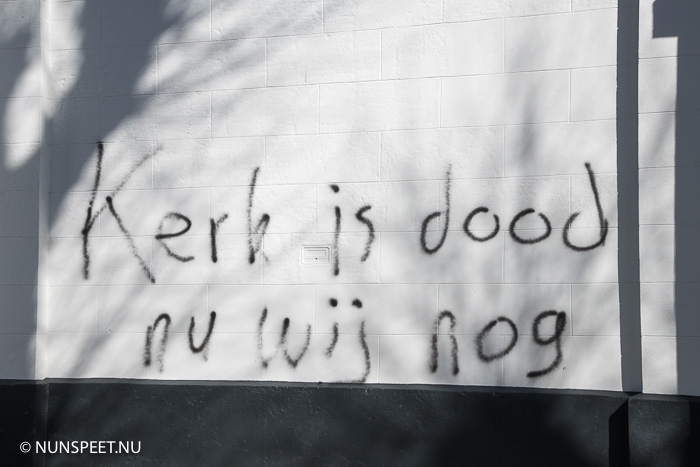 Kerk is dood
nu wij nog
© NUNSPEET.NU